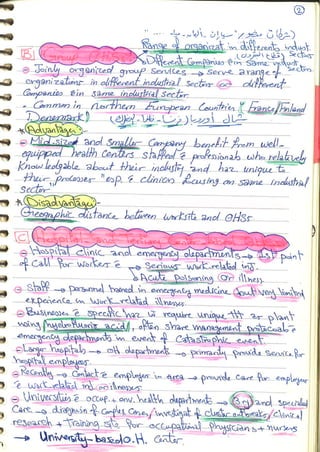 ②
Range of organizat. in different indust. sector
Different Companies in same indust. sector
B Group OHS
⊖ Jointly organized group services → serve a range of
organizations in different industrial sector or different
Companies in same industrial sector.
- Common in northern European Countries (France/Finland
Denemark)
* Advantages
⊖ Mid-sized and smaller Company benefit from well-
equipped health Centers staffed professionals who relatively
Knowledgable about their industry and haz unique to
their processes esp. clinics focusing on same industrial
sector
* Disadvantage
- Geographic distance between worksite and OHSs
C
⊖ Hospital clinic and emergency departments → 1st point
of Call for worker → serious work-related inj.
Acute poisoning or illness
⊖ Staff → personnel trained in emergency medicine but very limited
experience in work-related illnesses
⊖ Businesses specific haz require unique ttt or plant
using hydrofluoric acid, often share management protocols
emergency departments in event of Catastrophic event
⊖ Larger hospitals → OH department → primarily provide service for
hospital employees
⊖ Recently → Contact employer in area → provide Care for employees
work-related illnesses
⊖ Universities occup. env. health department → 3ry and specialized
Care → diagnosis of Complex Cases, investigat. of cluster outbreaks, Clinical
research + Training site for occupational physicians + nurses
→ University-based O.H. Center.